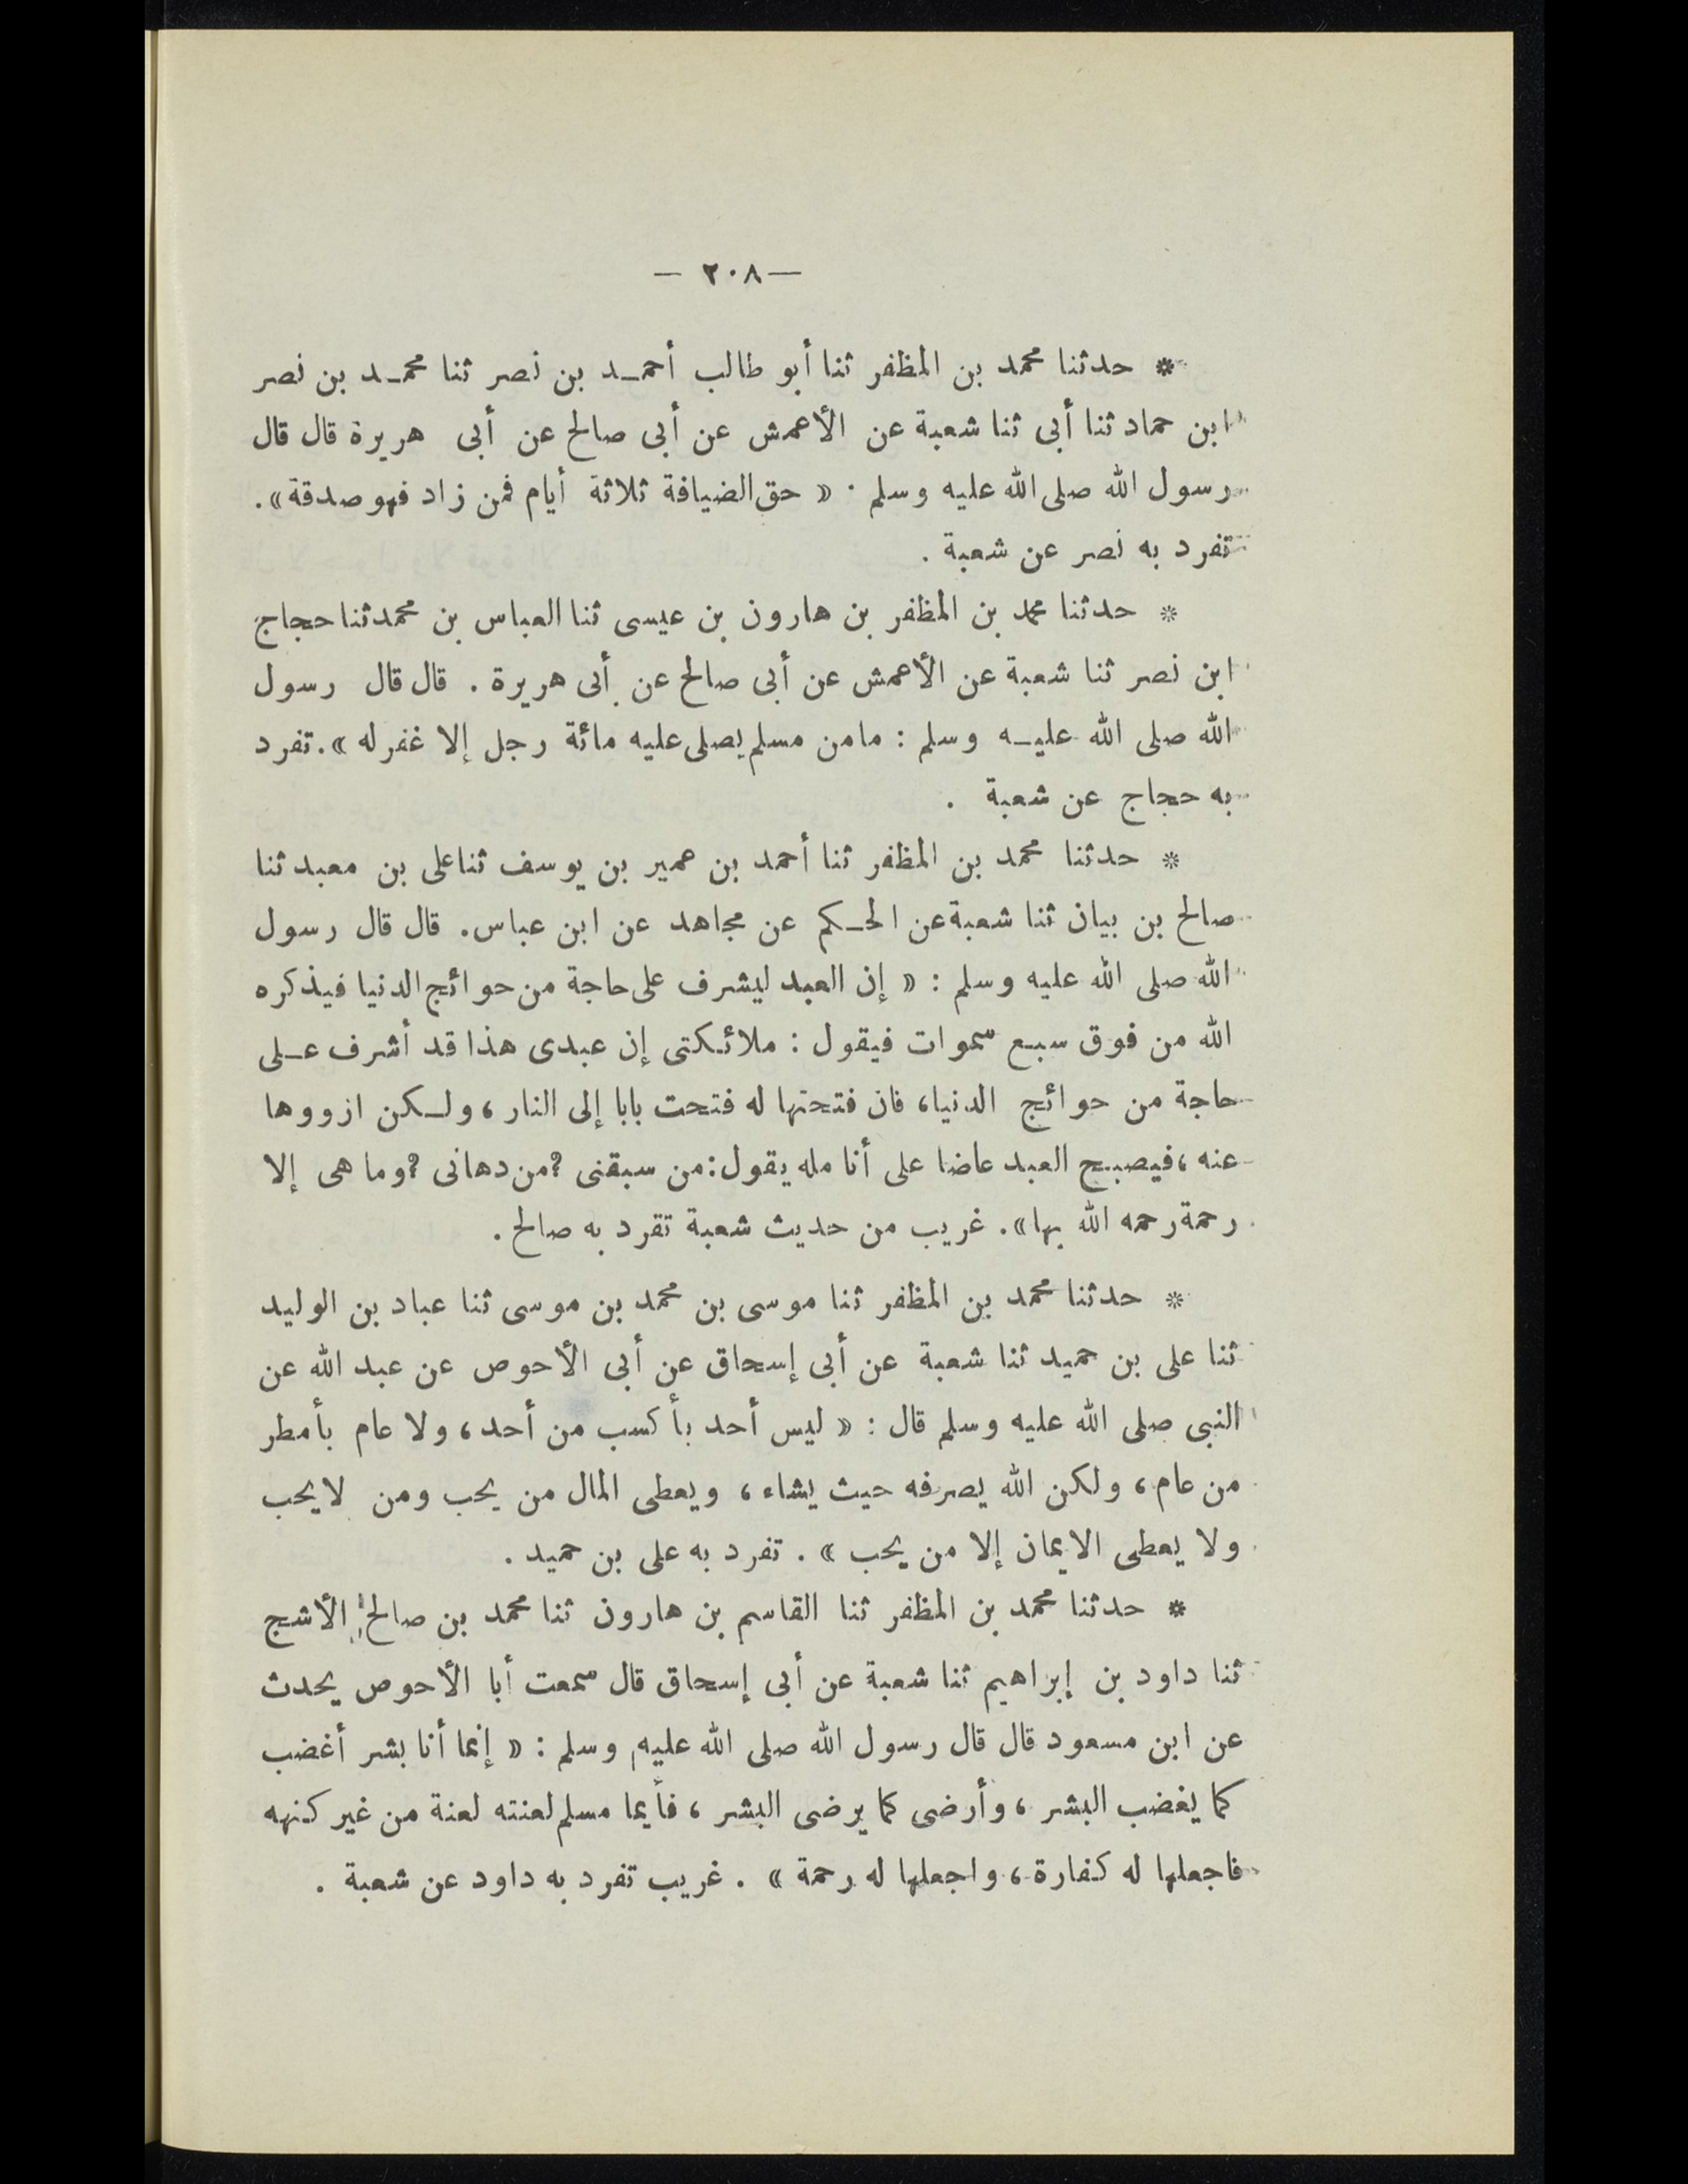 — ٢٠٨ —
* حدثنا محمد بن المظفر ثنا أبو طالب أحمـد بن نصر ثنا محمـد بن نصر
ابن حماد ثنا أبى ثنا شعبة عن الأعمش عن أبى صالح عن أبى هريرة قال قال
رسول الله صلى الله عليه وسلم · « حق الضيافة ثلاثة أيام فمن زاد فهو صدقة ».
تفرد به نصر عن شعبة .
* حدثنا محمد بن المظفر بن هارون بن عيسى ثنا العباس بن محمد ثنا حجاج
ابن نصر ثنا شعبة عن الأعمش عن أبى صالح عن أبى هريرة . قال قال رسول
الله صلى الله عليـه وسلم : ما من مسلم يصلى عليه مائة رجل إلا غفر له ». تفرد
به حجاج عن شعبة .
* حدثنا محمد بن المظفر ثنا أحمد بن عمير بن يوسف ثنا على بن معبد ثنا
صالح بن بيان ثنا شعبة عن الحـكم عن مجاهد عن ابن عباس. قال قال رسول
الله صلى الله عليه وسلم : « إن العبد ليشرف على حاجة من حوائج الدنيا فيذكره
الله من فوق سبع سموات فيقول : ملائكتى إن عبدى هذا قد أشرف عـلى
حاجة من حوائج الدنيا، فان فتحتها له فتحت بابا إلى النار ، ولـكن ازووها
عنه ، فيصبح العبد عاضا على أنامله يقول : من سبقنى ؟ من دهانى ؟ وما هى إلا
رحمة رحمه الله بها ». غريب من حديث شعبة تفرد به صالح .
* حدثنا محمد بن المظفر ثنا موسى بن محمد بن موسى ثنا عباد بن الوليد
ثنا على بن حميد ثنا شعبة عن أبى إسحاق عن أبى الأحوص عن عبد الله عن
النبى صلى الله عليه وسلم قال : « ليس أحد بأكسب من أحد ، ولا عام بأمطر
من عام ، ولكن الله يصرفه حيث يشاء ، ويعطى المال من يحب ومن لا يحب
ولا يعطى الايمان إلا من يحب » . تفرد به على بن حميد .
* حدثنا محمد بن المظفر ثنا القاسم بن هارون ثنا محمد بن صالح الأشج
ثنا داود بن إبراهيم ثنا شعبة عن أبى إسحاق قال سمعت أبا الأحوص يحدث
عن ابن مسعود قال قال رسول الله صلى الله عليه وسلم : « إنما أنا بشر أغضب
كما يغضب البشر ، وأرضى كما يرضى البشر ، فأيما مسلم لعنته لعنة من غير كنهه
فاجعلها له كفارة ، واجعلها له رحمة » . غريب تفرد به داود عن شعبة .